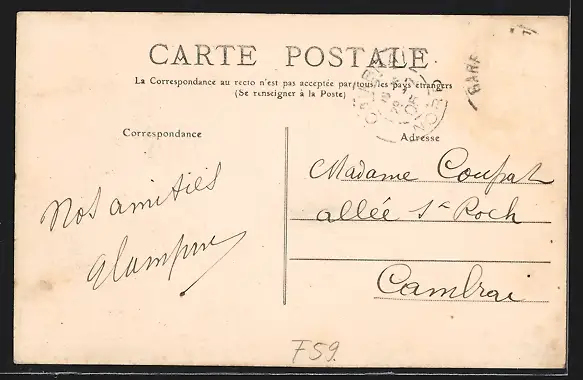 CARTE POSTALE
La Correspondance au recto n'est pas acceptée par tous les pays étrangers
(Se renseigner à la Poste)
Correspondance
Adresse
Nos amitiés
Madame Coupat
allée St Roch
Cambrai
F59.